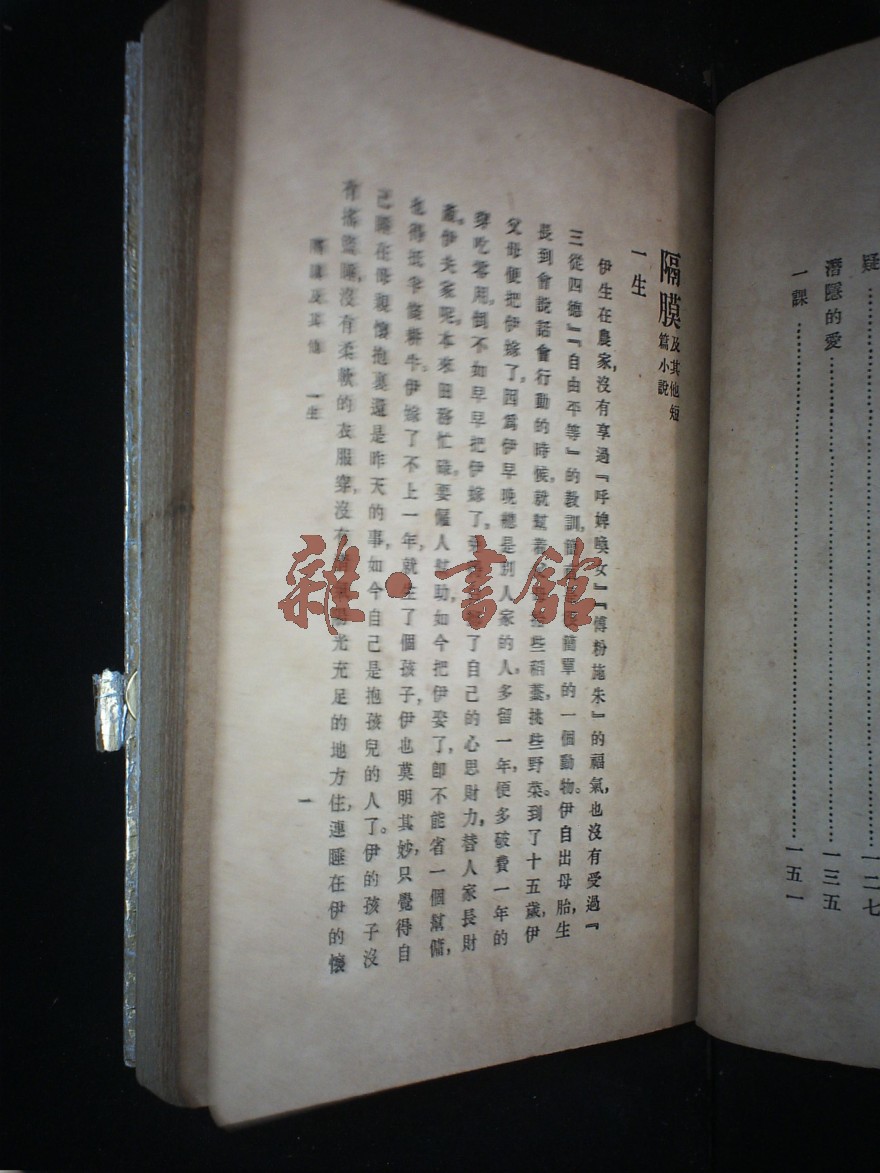 疑……一二七
潛隱的愛……一三五
一課……一五一
隔膜及其他短篇小說
一生
伊生在農家,沒有享過『呼婢喚女』『傅粉施朱』的福氣,也沒有受過『
三從四德』『自由平等』的教訓,簡單的一個動物。伊自出母胎,生
長到會說話會行動的時候,就幫着些稻藁,挑些野菜。到了十五歲,伊
父母便把伊嫁了。因爲伊早晚總是別人家的人,多留一年,便多破費一年的
穿吃零用,倒不如早早把伊嫁了,了自己的心思財力,替人家長財
產。伊夫家呢,本來田務忙碌,要僱人幫助,如今把伊娶了,即不能省一個幫傭,
也得抵半條耕牛。伊嫁了不上一年,就生了個孩子,伊也莫明其妙,只覺得自
己睡在母親懷抱裏還是昨天的事,如今自己是抱孩兒的人了。伊的孩子沒
有搖籃睡,沒有柔軟的衣服穿,沒有光充足的地方住,連睡在伊的懷
隔膜及其他 一生
一
雜·書館